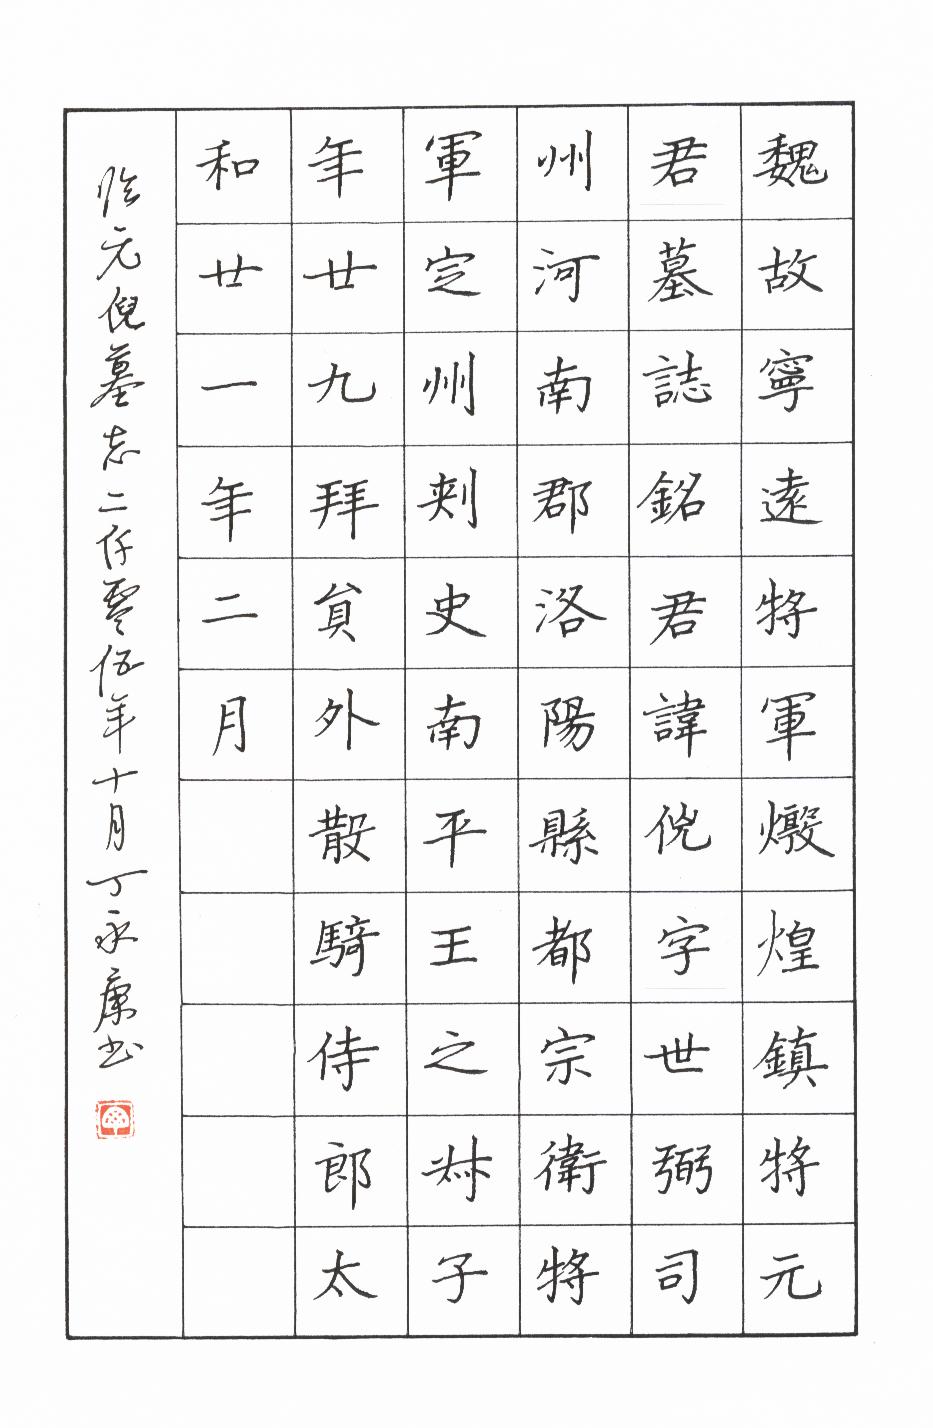 魏故寧遠將軍燉煌鎮將元
君墓誌銘君諱伲字世弼司
州河南郡洛陽縣都宗衛將
軍定州刺史南平王之叔子
年廿九拜員外散騎侍郎太
和廿一年二月
临元倪墓志二仟零伍年十月丁永康书